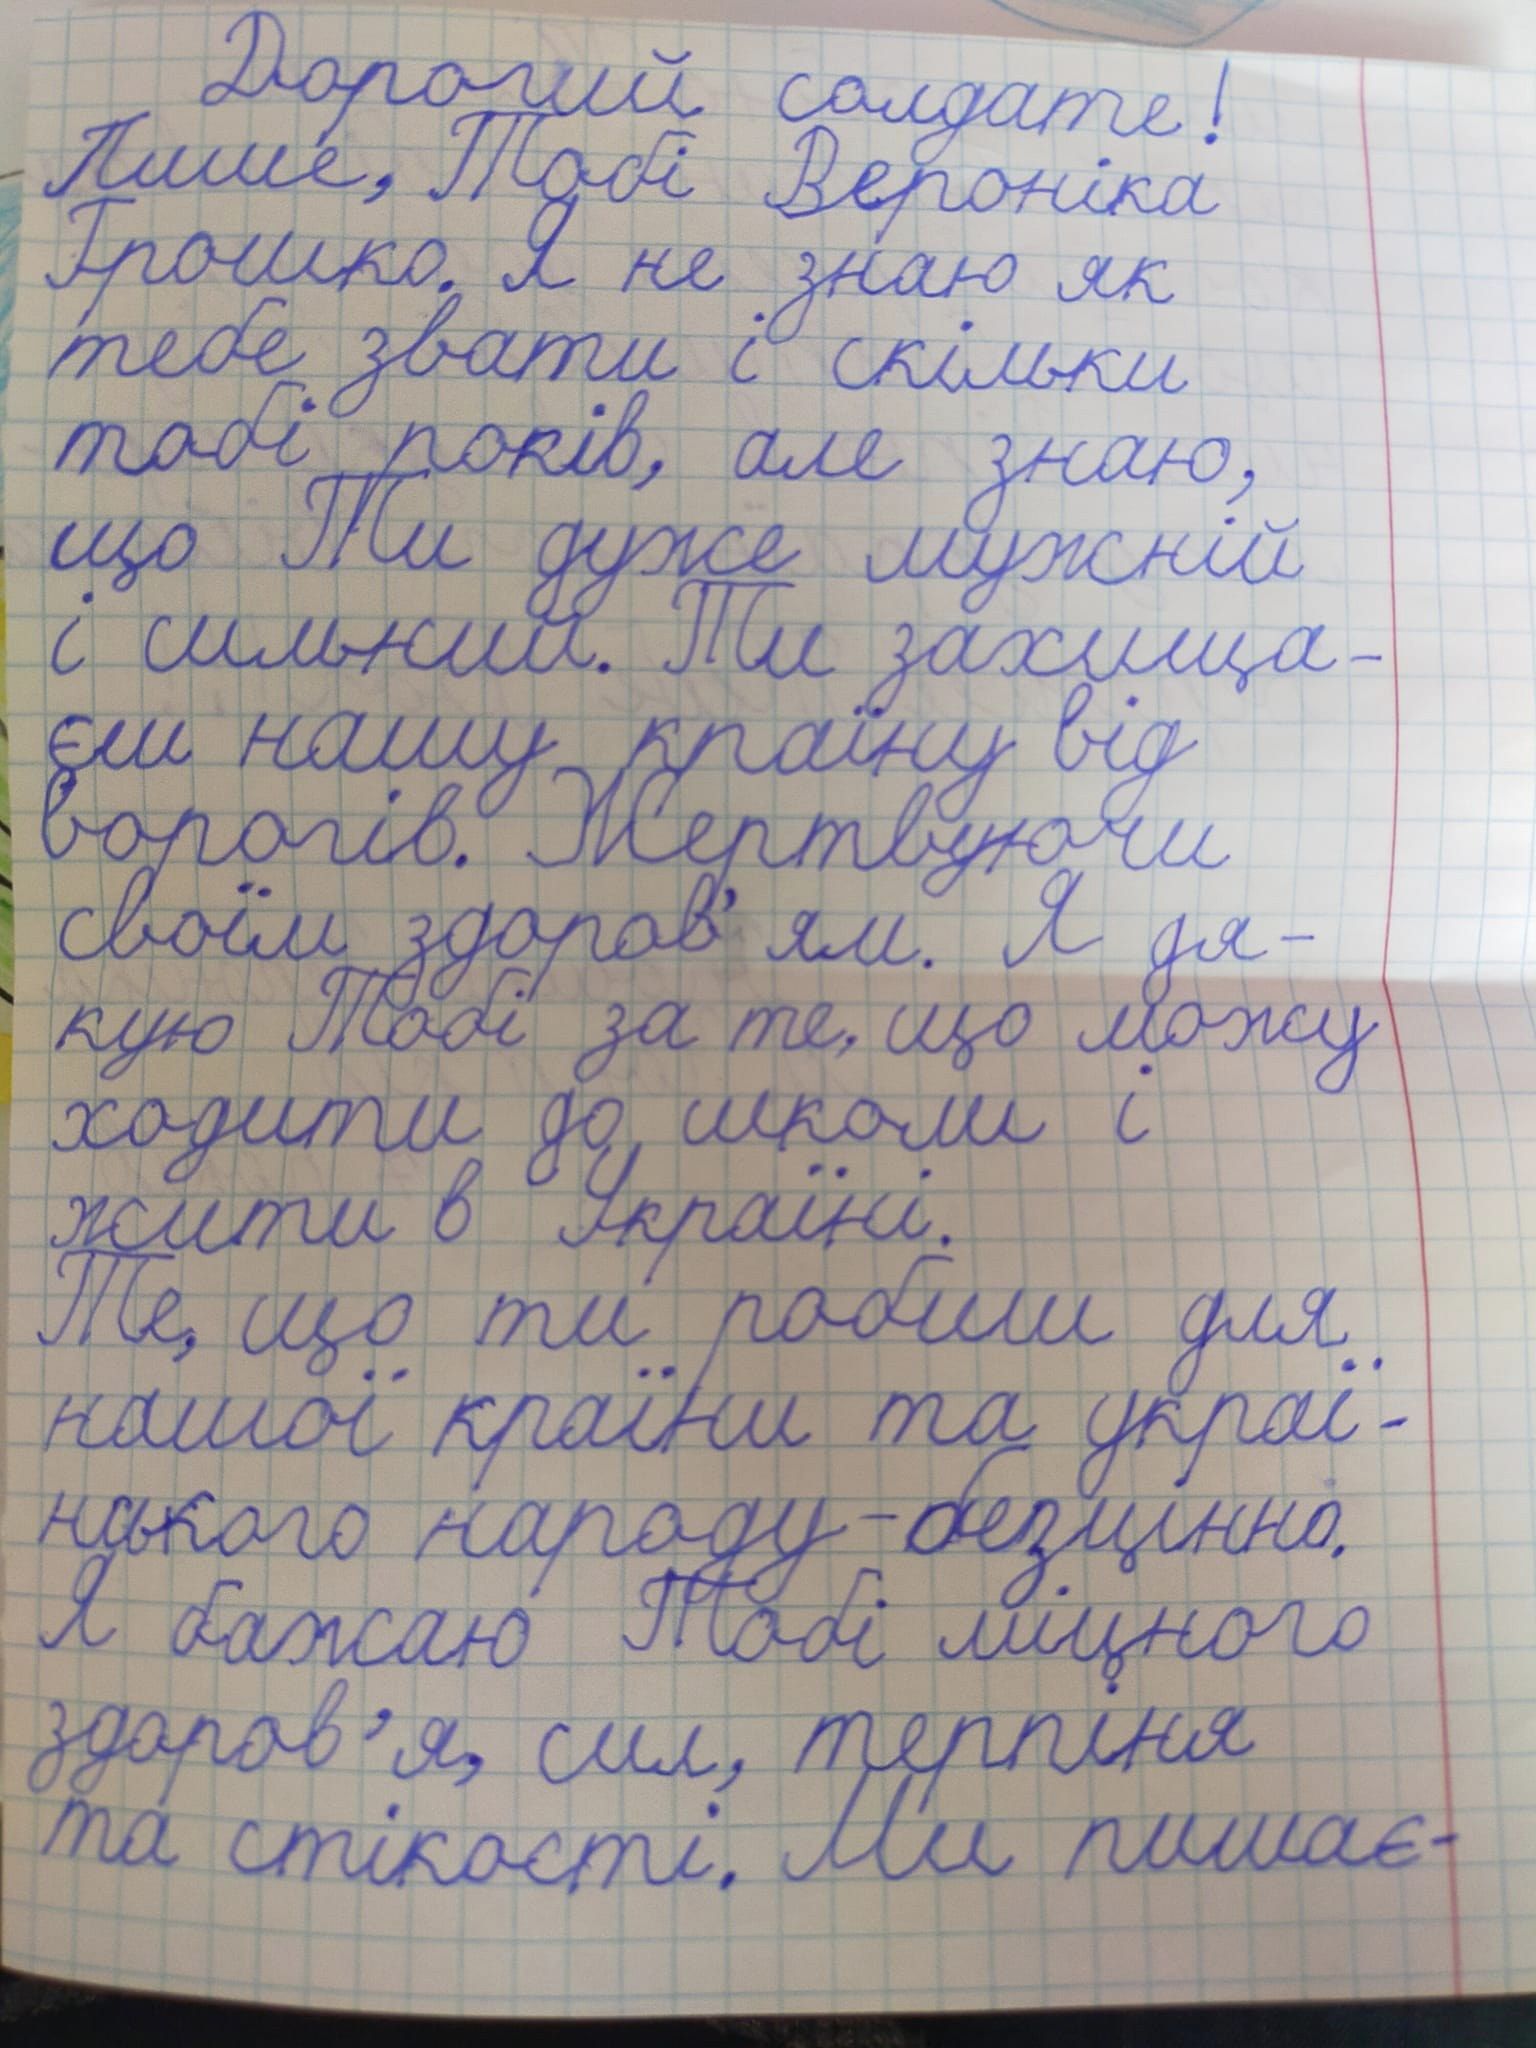 Дорогий солдате!
Пише, Тобі Вероніка
Грошко. Я не знаю як
тебе звати і скільки
тобі років, але знаю,
що Ти дуже мужній
і сильний. Ти захища-
єш нашу країну від
ворогів. Жертвуючи
своїм здоров'ям. Я дя-
кую Тобі за те, що можу
ходити до школи і
жити в Україні.
Те, що ти робиш для
нашої країни та украї-
нького народу-безцінно.
Я бажаю Тобі міцного
здоров'я, сил, терпіня
та стікості. Ми пишає-